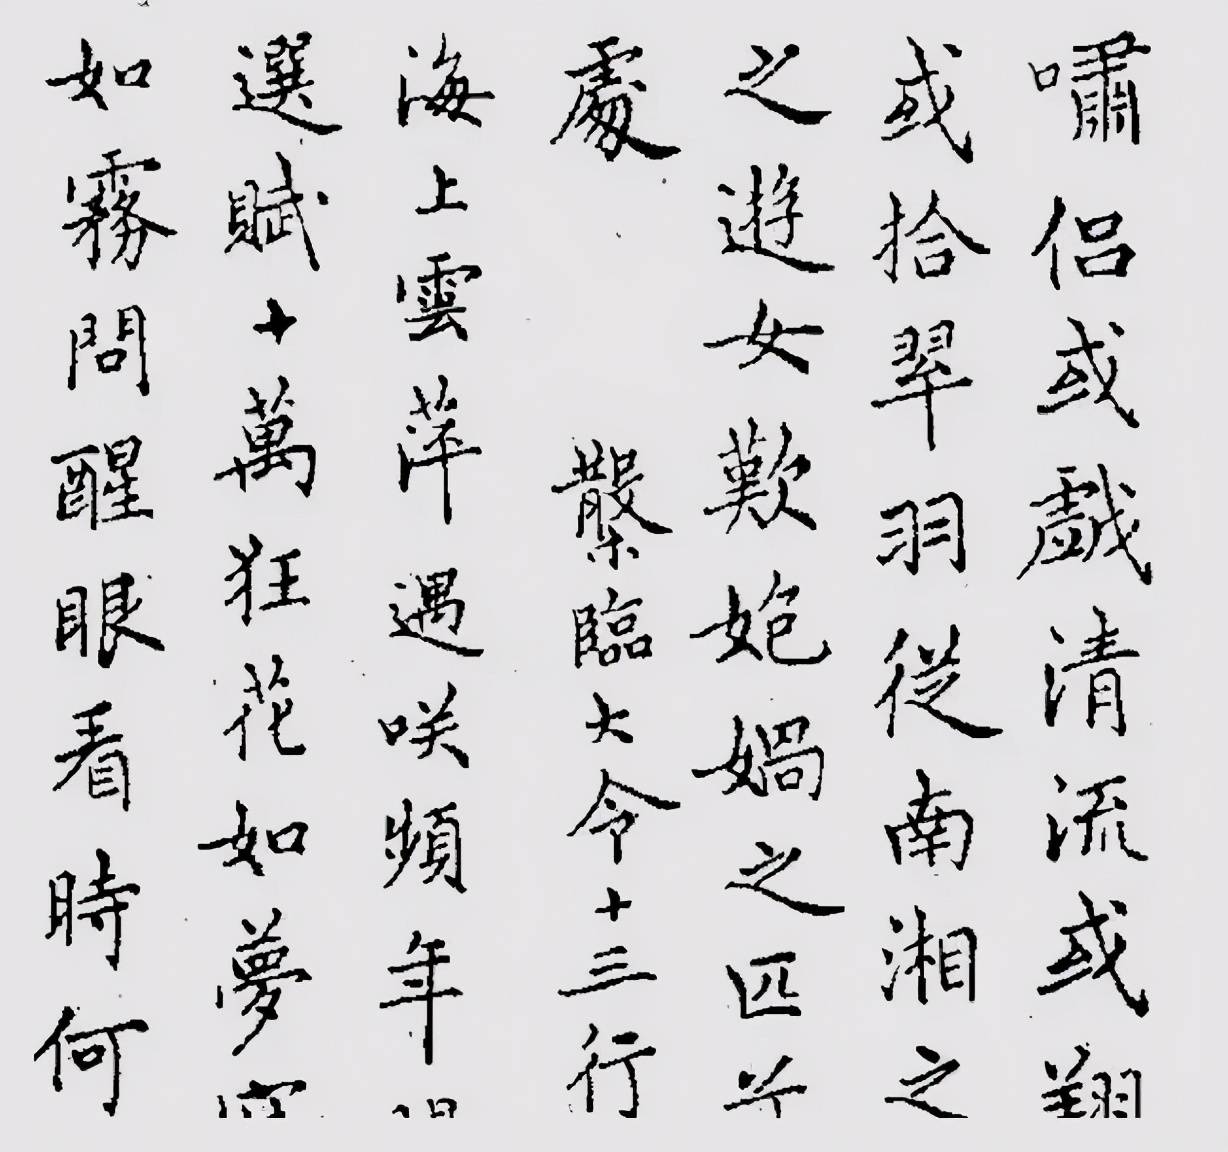 嘯侶或戲清流或翔
或拾翠羽從南湘之
之遊女歎媧之匹兮
處 臨大令十三行
海上雲萍遇咲頻年
選賦十萬狂花如夢
如霧問醒眼看時何